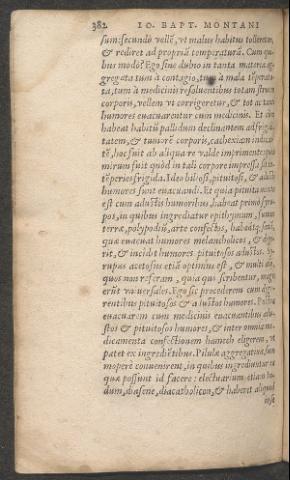 382 IO. BAPT. MONTANI
sum: secundò vellē, vt malus habitus tolleretur,
& rediret ad propriā temperaturā. Cum qui-
bus modo? Ego sine dubio in tanta materia ag-
gregata tum à contagio, tum à mala tēperatu-
ta, tum à medicinis resoluentibus totam
corporis, vellem vt corrigeretur, & tot ac tanti
humores euacuarentur cum medicinis. Et cùm
habeat habitū pallidum declinantem ad frigidi-
tatem, & tumorē corporis, cachexiam
tē, hoc fuit ab aliqua re valde imprimente: quia
mirum fuit quòd in tali corpore impressa sit in-
tēperies frigida. Ideo biliosi, pituitosi, & adusti
humores sunt euacuandi. Et quia pituita mixta
est cum adustis humoribus, habeat primo syru-
pos, in quibus ingrediatur epithymum, fumus
terræ, polypodiū, arte confectos, habeātq́;
quæ euacuat humores melancholicos, & ape-
rit, & incidit humores pituitosos adustos. Sy-
rupus acetosus etiā optimus est, & multi alij,
quos non referam, quia qui scribentur, sug-
gerūt vniuersales. Ego sic procederem cum dige-
rentibus pituitosos & adustos humores. Postea
euacuarem cum medicinis euacuantibus adu-
stos & pituitosos humores, & inter omnia me-
dicamenta confectionem hamech eligerem, vt
patet ex ingrediētibus. Pilulæ aggregatiuæ, sum
mopere conuenirent, in quibus ingrediuntur ea
quæ possunt id facere: electuarium etiam
dum, diasene, diacatholicon, & haberet aliquid